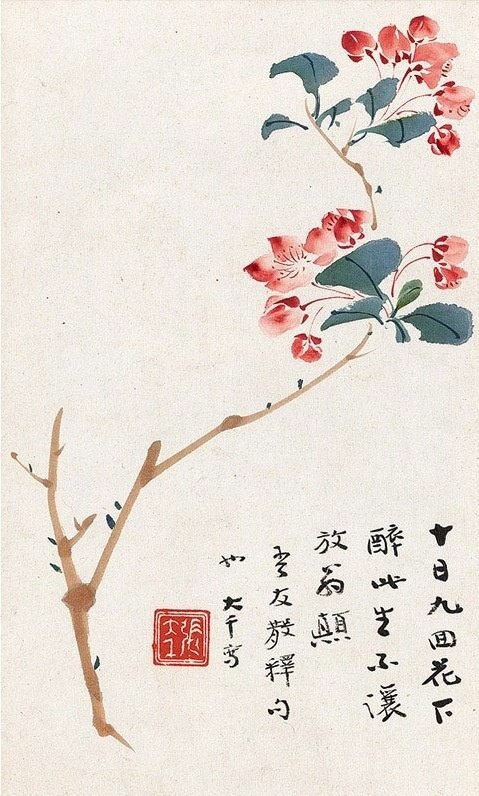 十日九回花下
醉此生不讓
放翁顛
友散釋句
也 大千寫
張爰